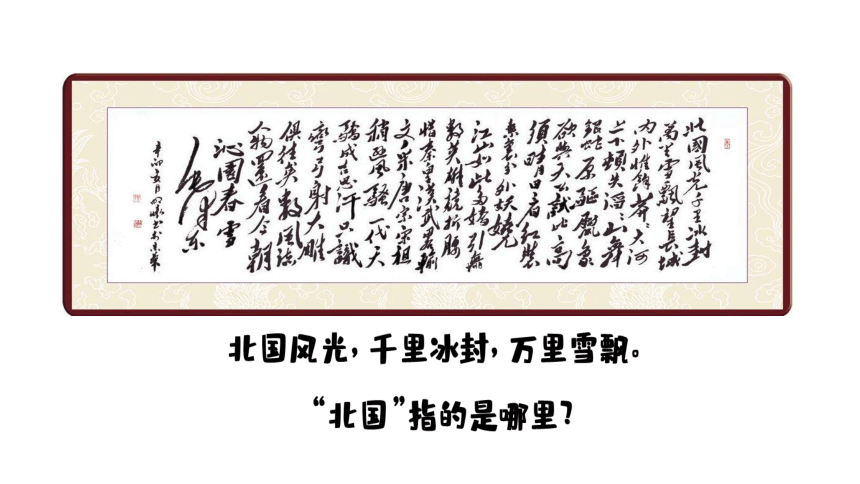 北國風光千里冰封
萬里雪飄望長城
内外惟餘莽〻大河
上下頓失滔〻山舞
銀蛇原驅臘象
欲與天公試比高
須晴日看紅裝
素裹分外妖嬈
江山如此多嬌引無
數英雄競折腰
惜秦皇漢武略輸
文采唐宗宋祖
稍遜風騷一代天
驕成吉思汗只識
彎弓射大雕
俱往矣數風流
人物還看今朝
沁園春雪
毛澤东
北国风光,千里冰封,万里雪飘。
“北国”指的是哪里?